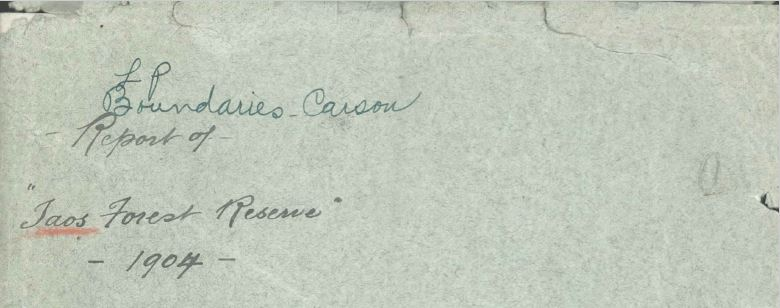 L P
Boundaries - Carson
- Report of -
"Taos Forest Reserve"
- 1904 -